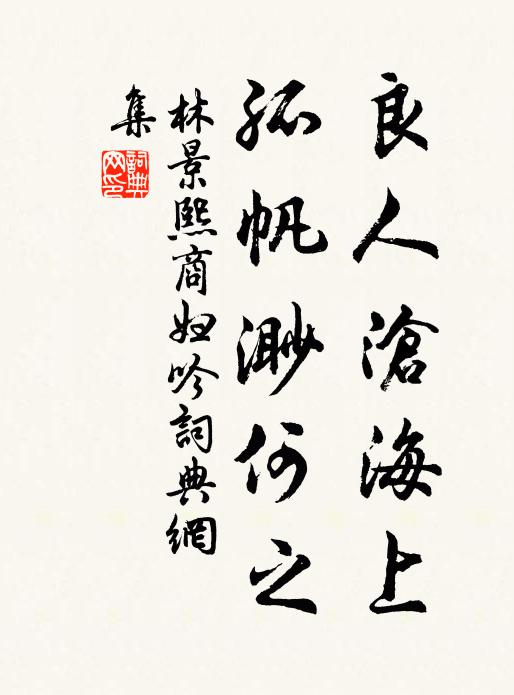 良人滄海上
孤帆渺何之
林景熙商婦吟詞典網
集
詞典
网印